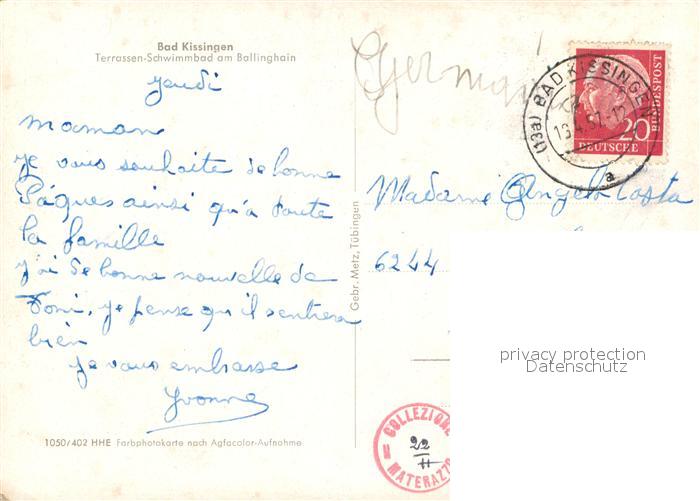 Bad Kissingen
Terrassen-Schwimmbad am Ballinghain
jeudi
maman
je vous souhaite de bonne
Pâques ainsi qu'à toute
la famille
j'ai de bonne nouvelle de
Toni, je pense qu'il sentira
bien
je vous embrasse
Yvonne
1050/402 HHE Farbphotokarte nach Agfacolor-Aufnahme
Gebr. Metz, Tübingen
Germania
(13a) BAD KISSINGEN
a
20
DEUTSCHE
BUNDESPOST
Madame Angelo Costa
6244
privacy protection
Datenschutz
COLLEZIONE
22
MATERAZZO